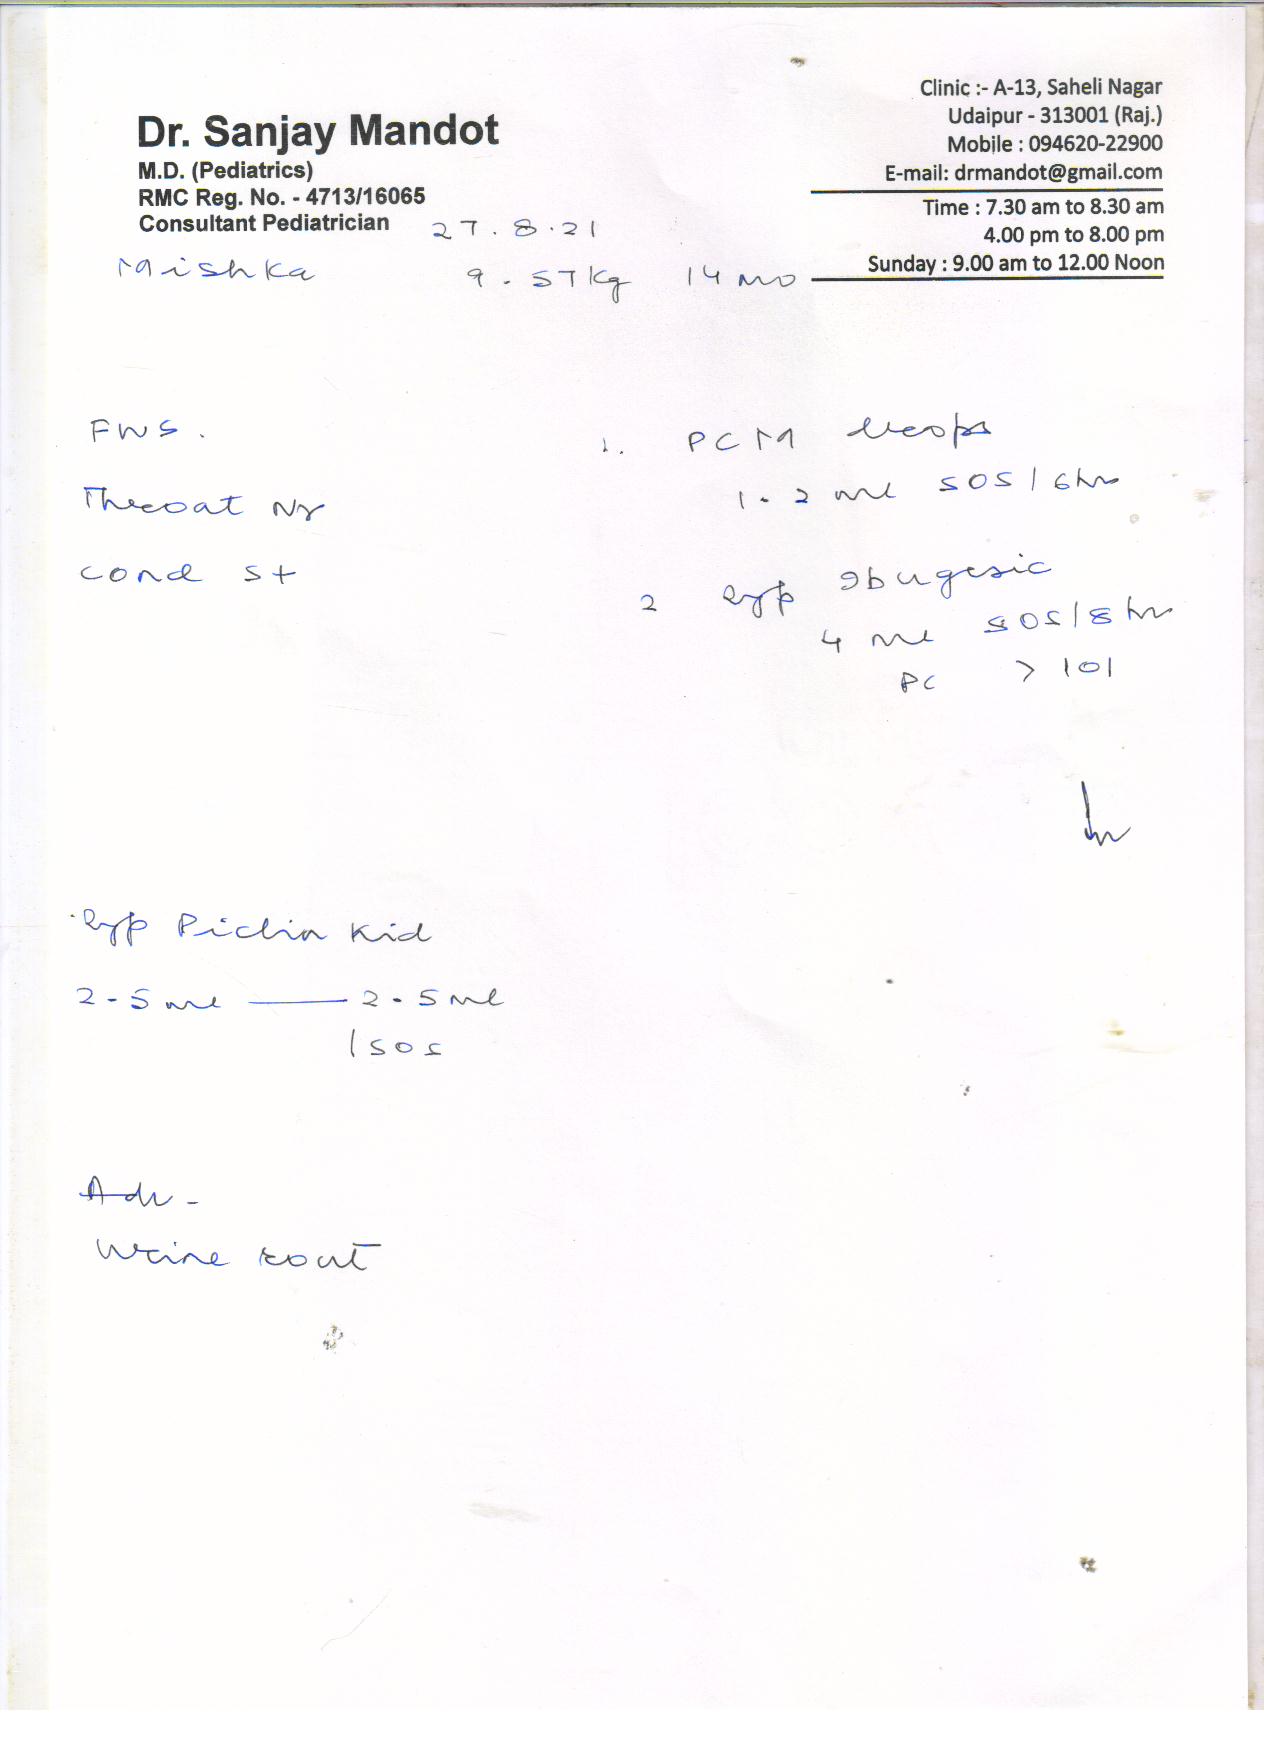 Dr. Sanjay Mandot
M.D. (Pediatrics)
RMC Reg. No. - 4713/16065
Consultant Pediatrician
Clinic :- A-13, Saheli Nagar
Udaipur - 313001 (Raj.)
Mobile : 094620-22900
E-mail: drmandot@gmail.com
Time : 7.30 am to 8.30 am
4.00 pm to 8.00 pm
Sunday : 9.00 am to 12.00 Noon
27.8.21
Mishka 9.57kg 14 mo
FWS.
Throat Nr
Cond St
1. PCM drops
1.2 ml SOS/6hr
2 Syp Ibugesic
4 ml SOS/8hr
PC > 101
Syp Kid
2.5ml — 2.5ml
/SOS
Adv -
Urine rout